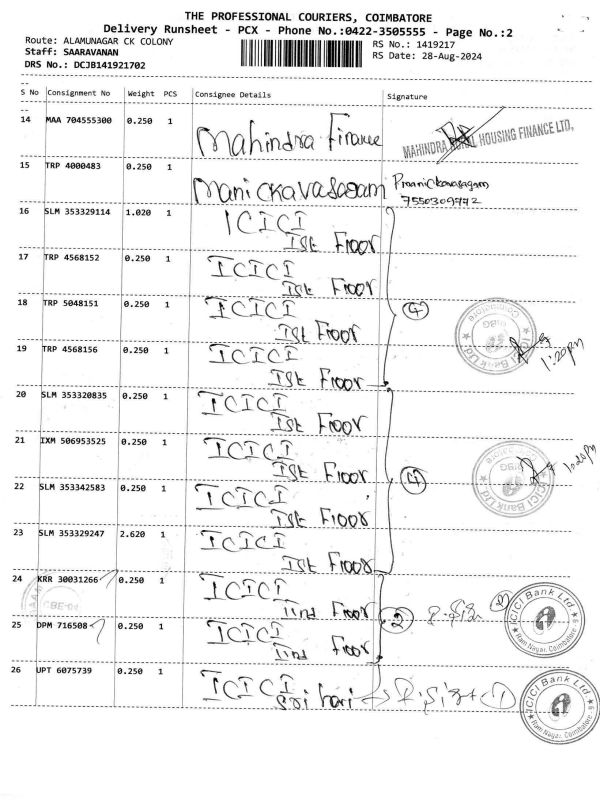 THE PROFESSIONAL COURIERS, COIMBATORE
Delivery Runsheet - PCX - Phone No.:0422-3505555 - Page No.:2
Route: ALAMUNAGAR CK COLONY
RS No.: 1419217
Staff: SAARAVANAN
RS Date: 28-Aug-2024
DRS No.: DCJB141921702
S No Consignment No Weight PCS Consignee Details Signature
14 MAA 704555300 0.250 1 Mahindra Finance MAHINDRA RURAL HOUSING FINANCE LTD,
15 TRP 4000483 0.250 1 Manickavasagam Manickavasagam
7550309772
16 SLM 353329114 1.020 1 ICICI
Ist Floor
17 TRP 4568152 0.250 1 ICICI
Ist Floor
18 TRP 5048151 0.250 1 ICICI
Ist Floor 4 ICICI Bank Ltd Coimbatore
19 TRP 4568156 0.250 1 ICICI 1:20pm
Ist Floor
20 SLM 353320835 0.250 1 ICICI
Ist Floor
21 IXM 506953525 0.250 1 ICICI
Ist Floor 4 ICICI Bank Ltd 1:20pm
22 SLM 353342583 0.250 1 ICICI
Ist Floor
23 SLM 353329247 2.620 1 ICICI
Ist Floor
24 KRR 30031266 0.250 1 ICICI
IInd Floor 2 ICICI Bank Ltd Ram Nagar, Coimbatore
25 DPM 716508 0.250 1 ICICI
IInd Floor
26 UPT 6075739 0.250 1 ICICI
Sri hari ICICI Bank Ltd Ram Nagar, Coimbatore